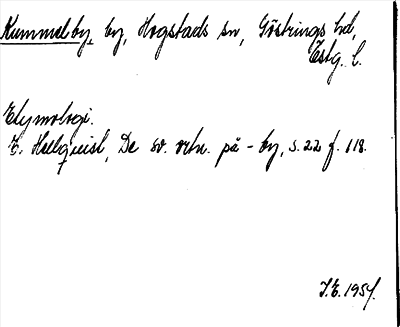 Kummelby, by, Hogstads sn, Göstrings hd,
Östg. l.
Etymologi.
E. Hellquist, De sv. ortn. på -by, s. 22 f. 118.
J.E. 1954.